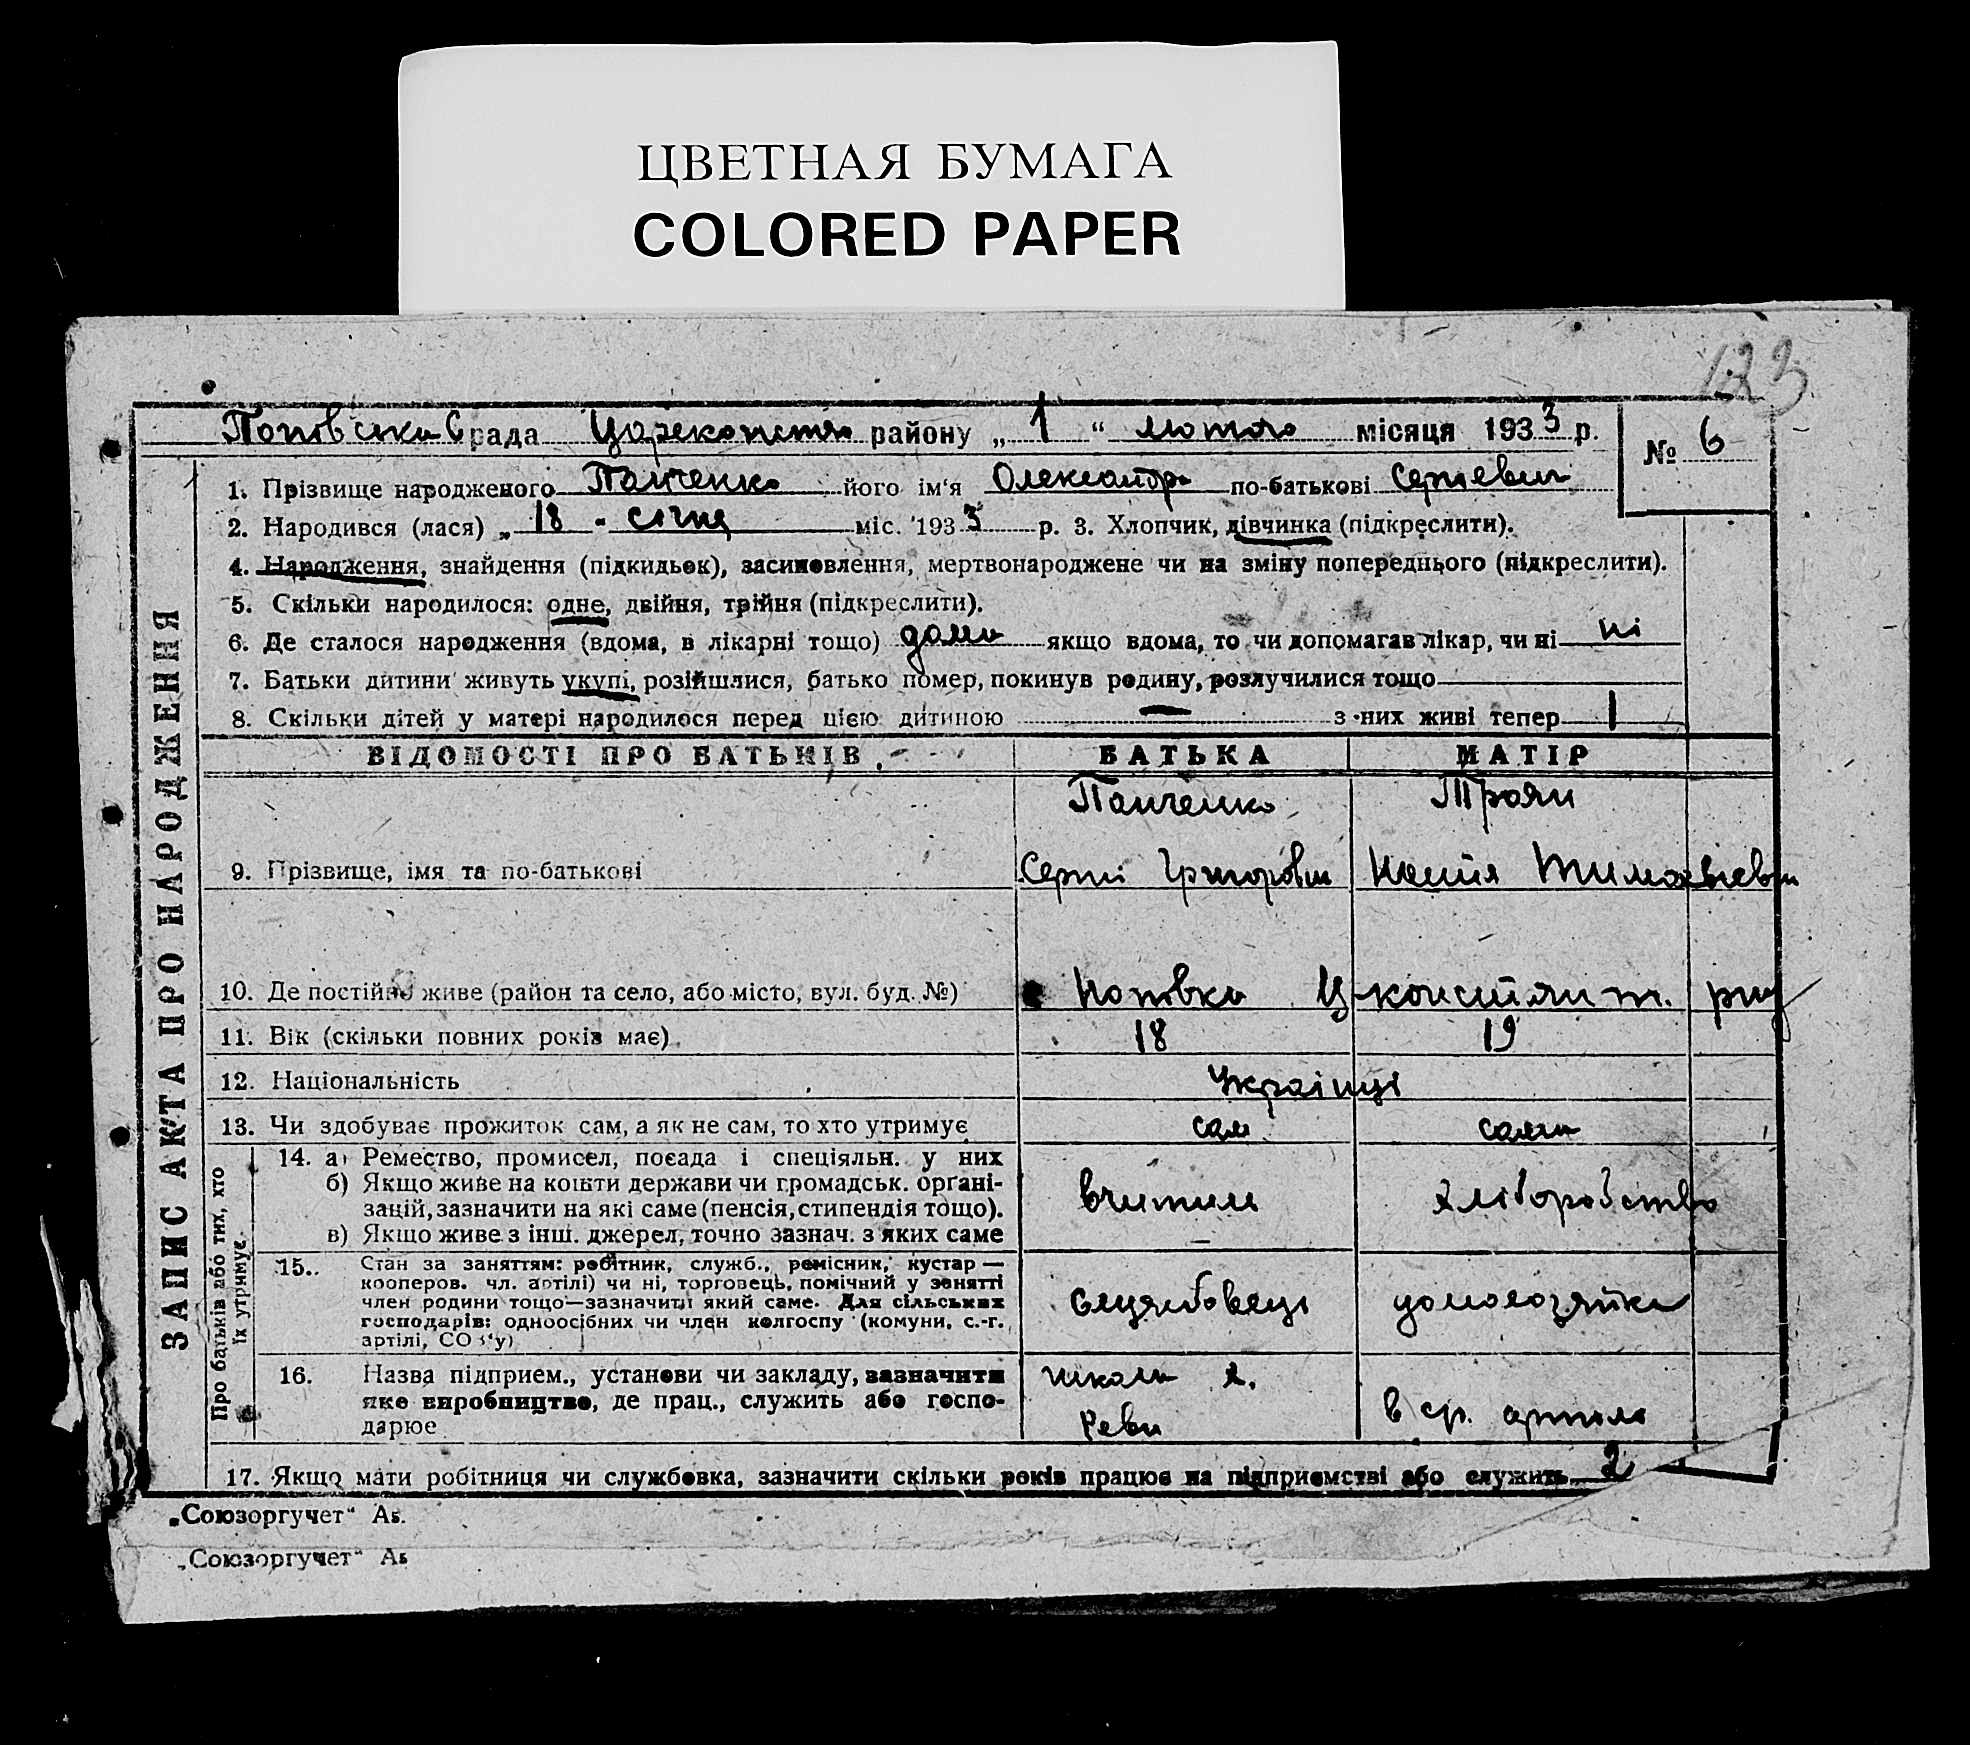 ЦВЕТНАЯ БУМАГА
COLORED PAPER
123
Попівська С рада району „ 1 “ лютого місяця 1933 р.
№ 6
ЗАПИС АКТА ПРО НАРОДЖЕННЯ
1. Прізвище народженого Панченко його ім‘я Олександра по-батькові Сергієвич
2. Народився (лася) „ 18 „ січня міс. 1933 р. 3. Хлопчик, дівчинка (підкреслити).
4. Народження, знайдення (підкидьок), засиновлення, мертвонароджене чи на зміну попереднього (підкреслити).
5. Скільки народилося: одне, двійня, трійня (підкреслити).
6. Де сталося народження (вдома, в лікарні тощо) дома якщо вдома, то чи допомагав лікар, чи ні ні
7. Батьки дитини живуть укупі, розійшлися, батько помер, покинув родину, розлучилися тощо
8. Скільки дітей у матері народилося перед цією дитиною — з них живі тепер 1
ВІДОМОСТІ ПРО БАТЬКІВ БАТЬКА МАТІР
Панченко Троян
9. Прізвище, імя та по-батькові Сергій Григорович
10. Де постійно живе (район та село, або місто, вул. буд. №) Попівка
11. Вік (скільки повних років має) 18 19
12. Національність Українці
13. Чи здобуває прожиток сам, а як не сам, то хто утримує сам сама
Про батьків або тих, хто їх утримує.
14. а) Ремество, промисел, посада і спеціяльн. у них
б) Якщо живе на кошти держави чи громадськ. органі-
зацій, зазначити на які саме (пенсія, стипендія тощо). вчитель хліборобство
в) Якщо живе з інш. джерел, точно зазнач. з яких саме
15. Стан за заняттям: робітник, служб., ремісник, кустар —
кооперов. чл. артілі) чи ні, торговець, помічний у занятті
член родини тощо—зазначити який саме. Для сільських
господарів: одноосібних чи член колгоспу (комуни, с.-г. службовець домохозяйка
артілі, СОЗ‘у)
16. Назва підприєм., установи чи закладу, зазначити школа
яке виробництво, де прац., служить або госпо- в ср. артілі
дарює
17. Якщо мати робітниця чи службовка, зазначити скільки років працює на підприємстві або служить 2
„Союзоргучет“ Аб.
„Союзоргучет“ Аб